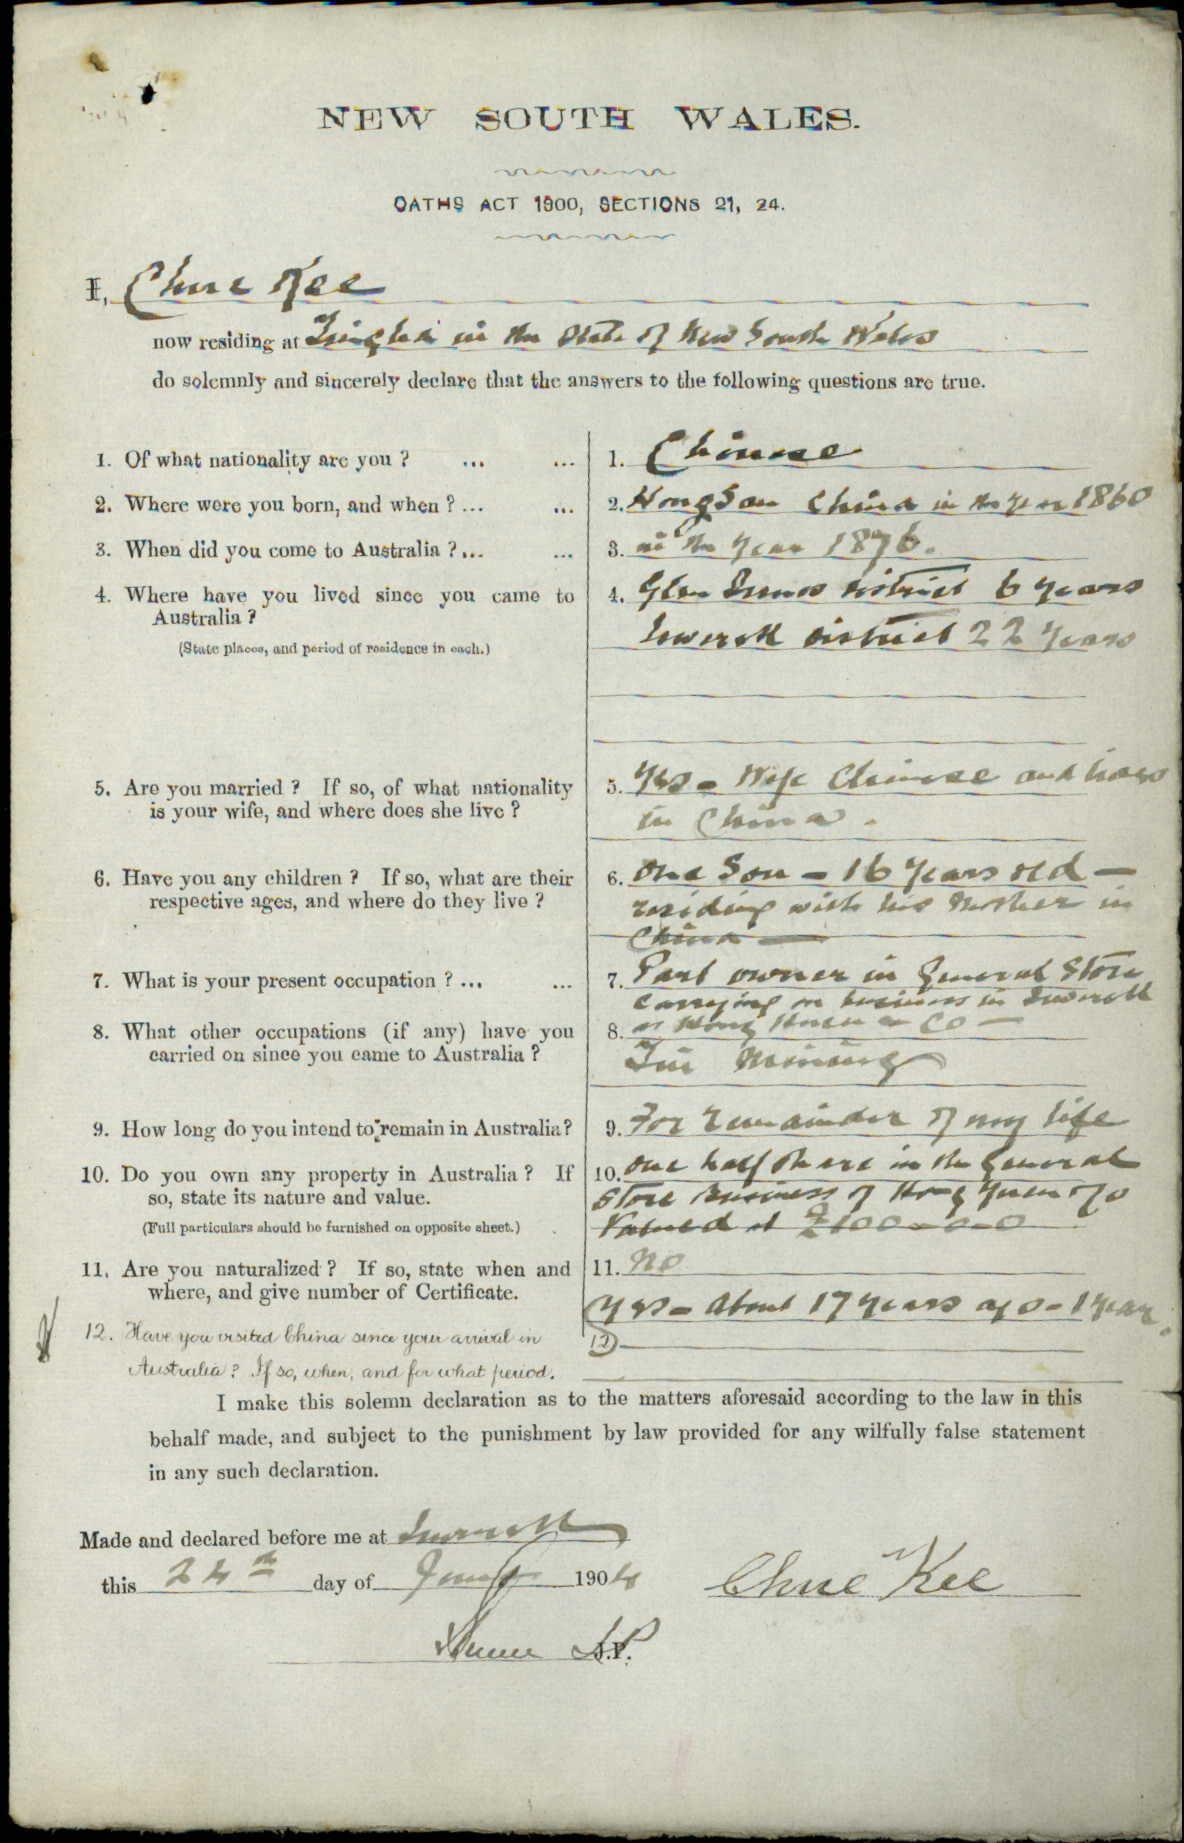 NEW SOUTH WALES.
OATHS ACT 1900, SECTIONS 21, 24.
I, Chue Kee
now residing at Tingha in the State of New South Wales
do solemnly and sincerely declare that the answers to the following questions are true.
1. Of what nationality are you ? ... ...
1. Chinese
2. Where were you born, and when ? ... ...
2. Hong San China in the year 1860
3. When did you come to Australia ? ... ...
3. in the year 1876.
4. Where have you lived since you came to
Australia ?
(State places, and period of residence in each.)
4. Glen Innes District 6 years
Inverell District 22 years
5. Are you married ? If so, of what nationality
is your wife, and where does she live ?
5. Yes - Wife Chinese and lives
in China.
6. Have you any children ? If so, what are their
respective ages, and where do they live ?
6. One Son - 16 years old -
residing with his Mother in
China
7. What is your present occupation ? ... ...
7. Part owner in General Store
carrying on business in Inverell
as Hong Yuen & Co -
8. What other occupations (if any) have you
carried on since you came to Australia ?
8.
Tin Mining
9. How long do you intend to remain in Australia?
9. For remainder of my life
10. Do you own any property in Australia ? If
so, state its nature and value.
(Full particulars should be furnished on opposite sheet.)
10. One half share in the General
Store Business of Hong Yuen & Co
Valued at £100-0-0
11. Are you naturalized ? If so, state when and
where, and give number of Certificate.
11. No
12. Have you visited China since your arrival in
Australia? If so, when, and for what period.
Yes - About 17 years ago - 1 year.
12
I make this solemn declaration as to the matters aforesaid according to the law in this
behalf made, and subject to the punishment by law provided for any wilfully false statement
in any such declaration.
Made and declared before me at Inverell
this 24th day of 1904
Chue Kee
J.P.